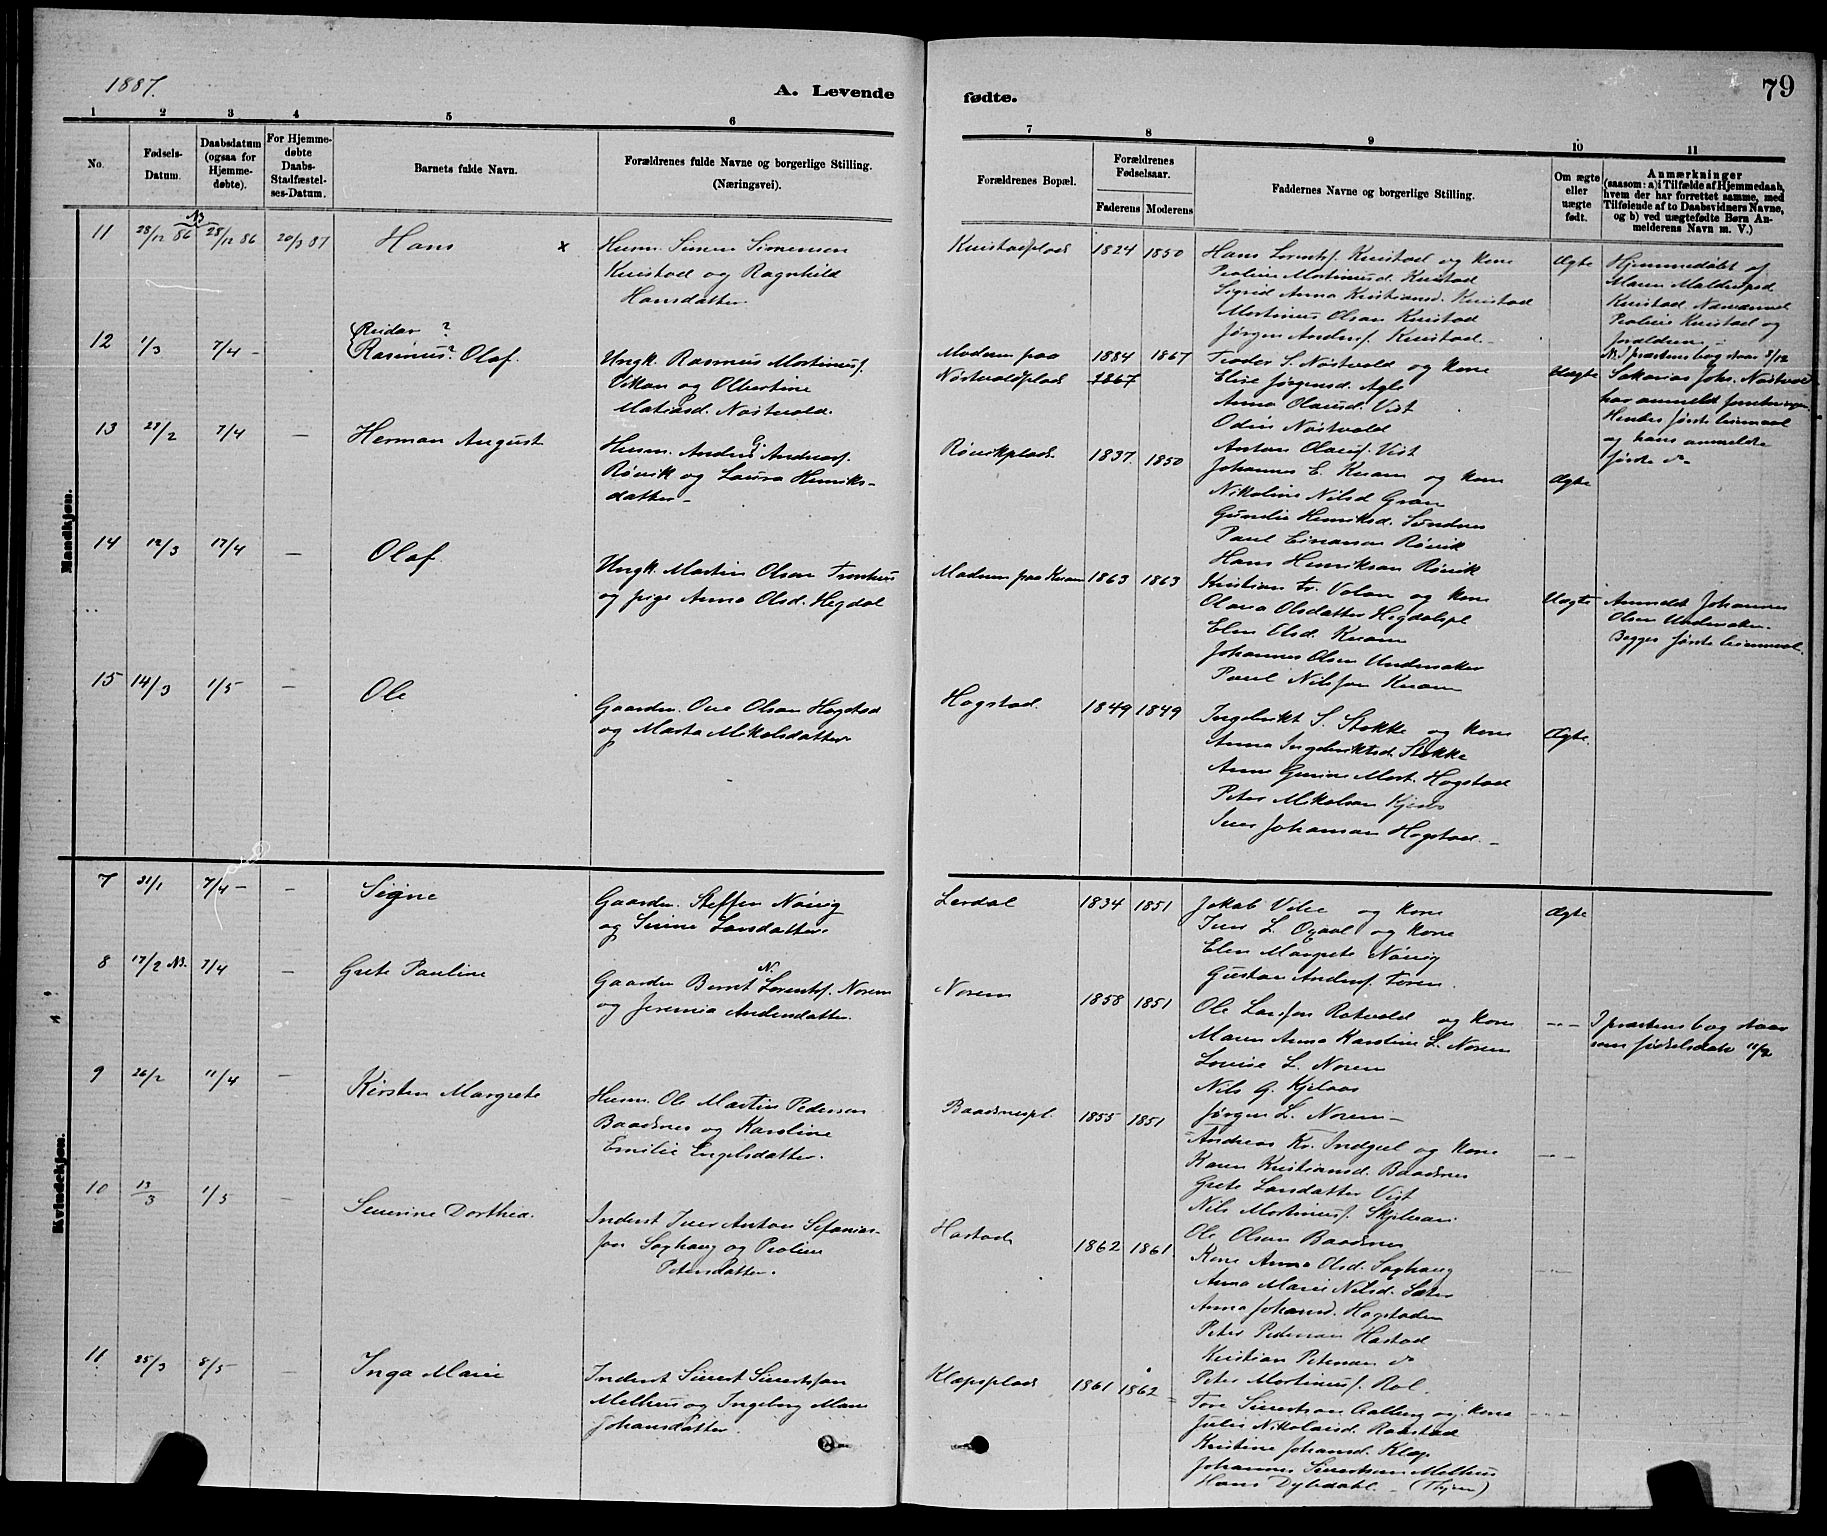 1887.
A. Levende
fødte.
79
1 2 3 4 5 6
7 8 9 10 11
No.
Fødsels-Datum.
Daabsdatum (ogsaa for Hjemmedøbte).
For Hjemmedøbte Daabs-Stadfæstelses-Datum.
Barnets fulde Navn.
Forældrenes fulde Navne og borgerlige Stilling. (Næringsvei).
Forældrenes Bopæl.
Forældrenes Fødselsaar.
Faderens Moderens
Faddernes Navne og borgerlige Stilling.
Om ægte eller uægte født.
Anmærkninger
(saasom: a) i Tilfælde af Hjemmedaab, hvem der har forrettet samme, med Tilføiende af to Daabsvidners Navne, og b) ved uægtefødte Børn Anmelderens Navn m. V.)
Mandkjøn.
11 28/12 86 NB 28/12 86 20/3 87 Hans x
Husm. Simen Simensen
Knistad og Ragnhild
Hansdatter
Knistadplads 1824 1850
Hans Lorents. Knistad og kone
Peoline Mortinusd. Knistad
Sigrid Anna Kristiansd. Knistad
Mortinus Olsen Knistad
Jørgen Anders. Knistad
Ægte
Hjemmedøbt af
Maren
Knistad
Peoline Knistad og
forældrene
12 1/3 7/4 - Reidar ?
Rasmus? Olaf.
Ungk. Rasmus Mortinus.
Vikan og Olbertine
P Matiasd. Nøstvold.
Moderen paa
Nøstvoldplads
1884 1867
1867
S. Nøstvold og kone
Elise Jørgensd. Agle
Anna Olausd. Vist
Odin Nøstvold
Anton Olaus. Vist
Uægte
NB. I præstens bog staar 3/12
Sakarias Johs. Nøstvold
har anmeldt
Hendes første leiermaal
og hans anmeldte
første do
13 28/2 7/4 — Herman August
Husm. Anders G. Anders.
Røvik og Laura Henriks-
datter
Røvikplads 1837. 1850
Johannes E. Kvam og kone
Nikoline Nilsd Gran
Gunelie Henriksd. Sundnes
Paul Einarsen Røvik
Hans Henriksen Røvik
Ægte
14 12/3 17/4 — Olaf
Ungk. Martin Olsen
og pige Anna Olsd. Hegdal
Moderen paa Kvam 1863 1863
Kristian Fr. Volan og kone
Olava Olsdatter Hegdalspl
Elen Olsd. Kvam
Johannes Olsen Undersaker
Paul Nilssen Kvam
Uægte
Anmeldt Johannes
Olsen Undersaker.
Begges første leiermaal.
15 14/3 1/5 — Ole
Gaardm. Ove Olsen Hogstad
og Marta Mikalsdatter
Hogstad. 1849 1849
Ingebrikt S. Stokke og kone
Anna Ingebriktsd. Stokke
Anne Gurine Mort. Hogstad
Peter Mikalsen
Iver Johansen Hogstad.
Ægte.
Kvindekjøn.
7 31/1 7/4 — Signe
Gaardm. Steffen Nørig
og Sirine Larsdatter
Lerdal 1834 1851
Jakob Velse og kone
Iver L. og kone
Elen Margrete Nørig
Gustav Anders. Foren.
Ægte
8 17/2 NB. 7/4 — Grete Pauline
Gaardm Bernt N. Lorents. Norem
og Jeremia Andersdatter.
Norem 1858 1851
Ole Larsson Rotvold og kone
Maren Anna Karoline L. Norem
Lovise L. Norem
Nils G. Kjelaas
Jørgen L. Norem
— " —
I præstens bog staar
som fødselsdato 11/2
9 26/2 11/4 — Kirsten Margrete
Husm. Ole Martin Pedersen
Baadsnes og Karoline
Emilie Engelsdatter.
Baadsnespl. 1855 1851
Andreas Kr. Indgul og kone
Karen Kristiansd. Baadsnes
Grete Larsdatter Vist
Nils Mortinus. Skjelvan
Ole Olsen Baadsnes
— " —
10 13/3 1/5 — Severine Dorthea.
Inderst Iver Anton Sefanias-
son Saghaug og Peoline
Petersdatter.
Hastad 1862 1861
Kone Anna Olsd. Saghaug
Anna Marie Nilsd. Sæter
Anna Johansd. Hogstaden
Peter Pedersen Hastad
Kristian Petersen do
Peter Mortinus. Rol.
— " —
11 25/3 8/5 — Inga Marie
Inderst Sivert Sivertssøn
Melhus og Ingeborg Marie
Johansdatter.
Klæpsplads 1861 1862
Tore Sivertsen Aalberg og kone
Julie Nikolaisd. Raastad
Kristine Johansd. Klæp
Johannes Sivertsen Melhus
Hans Dybdahl. (Thjen)
— " —